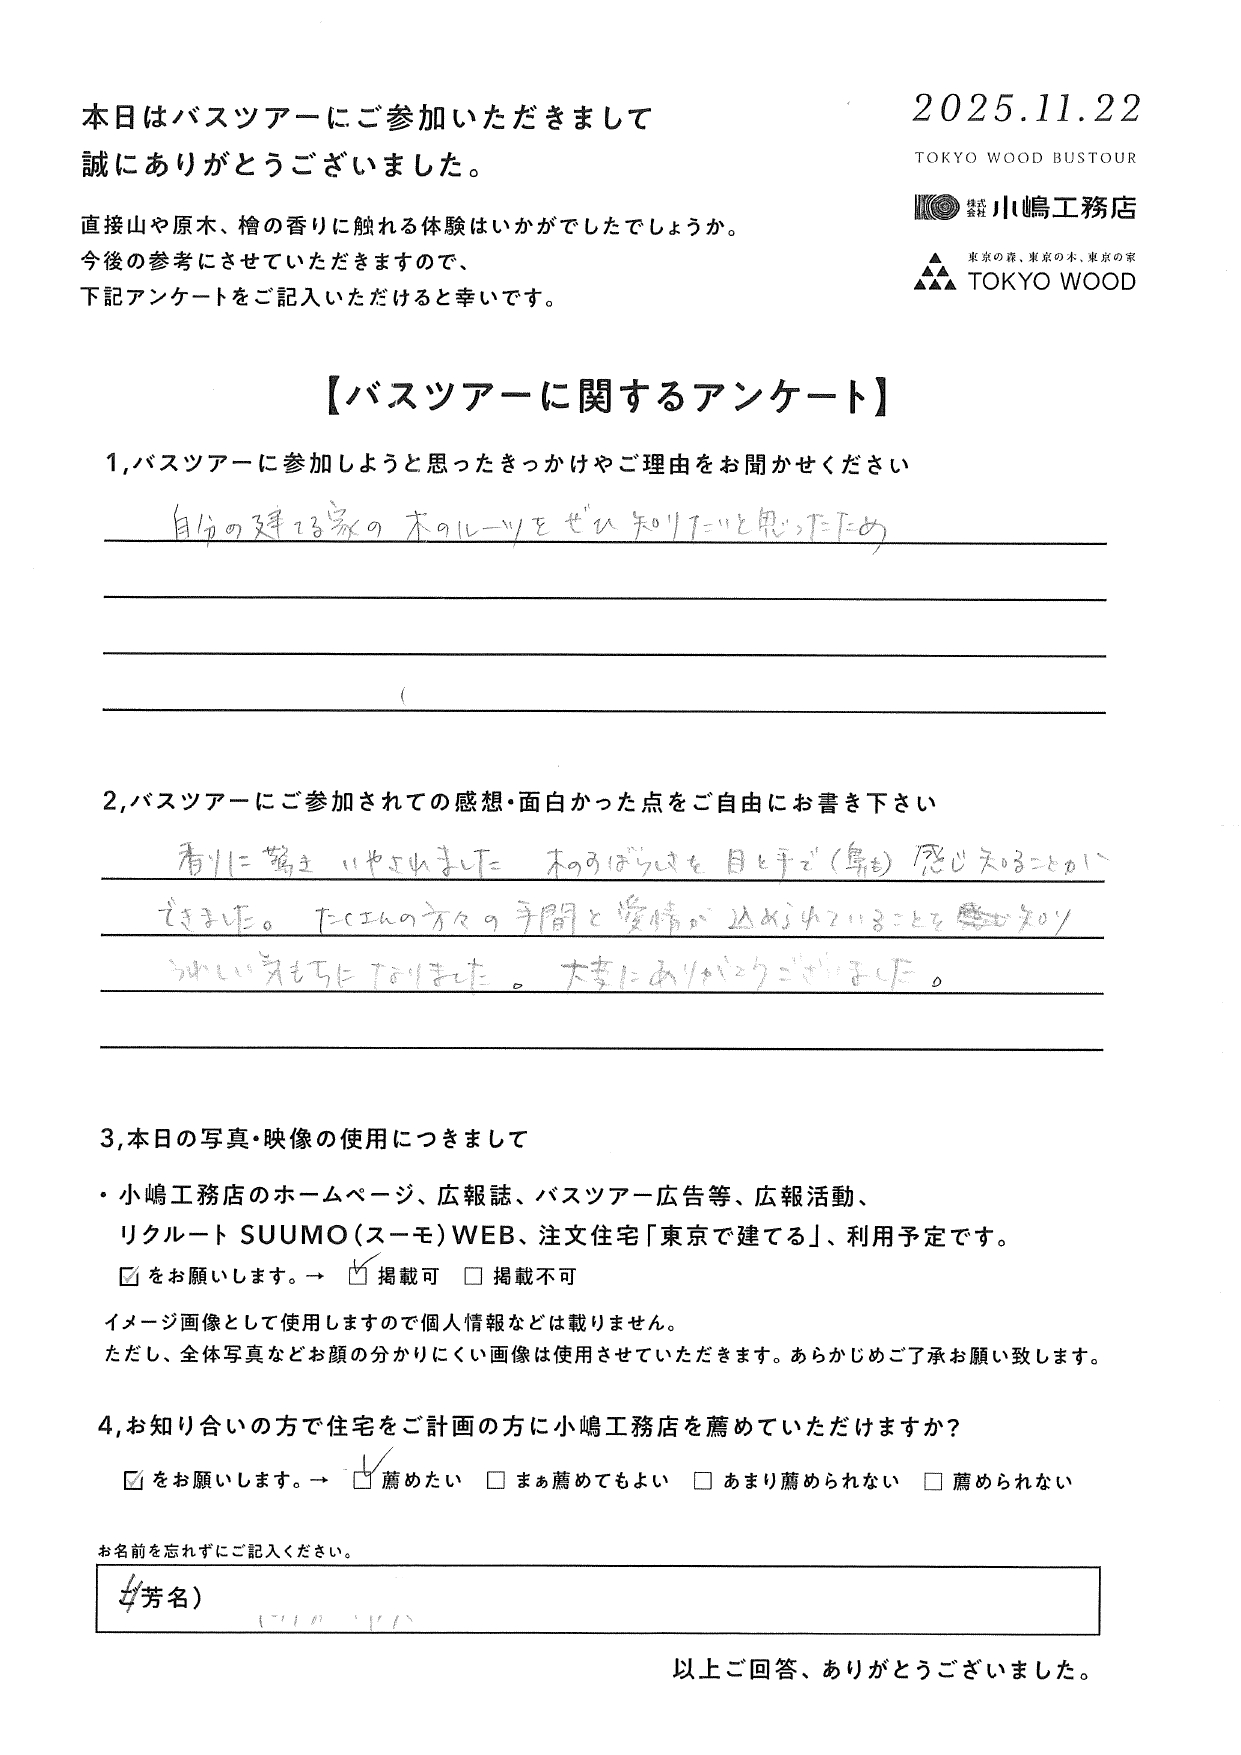 本日はバスツアーにご参加いただきまして
誠にありがとうございました。
直接山や原木、檜の香りに触れる体験はいかがでしたでしょうか。
今後の参考にさせていただきますので、
下記アンケートをご記入いただけると幸いです。
2025.11.22
TOKYO WOOD BUSTOUR
株式会社 小嶋工務店
東京の森、東京の木、東京の家
TOKYO WOOD
【バスツアーに関するアンケート】
1,バスツアーに参加しようと思ったきっかけやご理由をお聞かせください
自分の建てる家の 木のルーツをぜひ知りたいと思ったため
2,バスツアーにご参加されての感想・面白かった点をご自由にお書き下さい
香りに驚き いやされました 木のすばらしさを 目と手で(鼻も) 感じ知ることが
できました。 たくさんの方々の手間と愛情が 込められていることを 知り
うれしい気もちに なりました。 大変にありがとうございました。
3,本日の写真・映像の使用につきまして
・小嶋工務店のホームページ、広報誌、バスツアー広告等、広報活動、
リクルート SUUMO(スーモ)WEB、注文住宅「東京で建てる」、利用予定です。
☑をお願いします。→ ☑掲載可 □掲載不可
イメージ画像として使用しますので個人情報などは載りません。
ただし、全体写真などお顔の分かりにくい画像は使用させていただきます。あらかじめご了承お願い致します。
4,お知り合いの方で住宅をご計画の方に小嶋工務店を薦めていただけますか?
☑をお願いします。→ ☑薦めたい □まぁ薦めてもよい □あまり薦められない □薦められない
お名前を忘れずにご記入ください。
ご芳名)
以上ご回答、ありがとうございました。